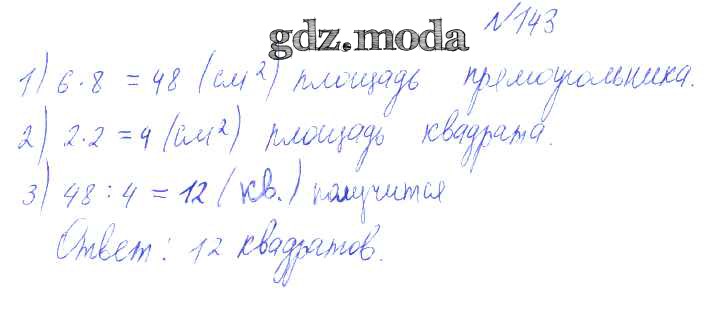 №143
gdz.moda
1) 6·8 = 48 (см²) площадь прямоугольника.
2) 2·2 = 4 (см²) площадь квадрата.
3) 48 : 4 = 12 (кв.) получится
Ответ: 12 квадратов.